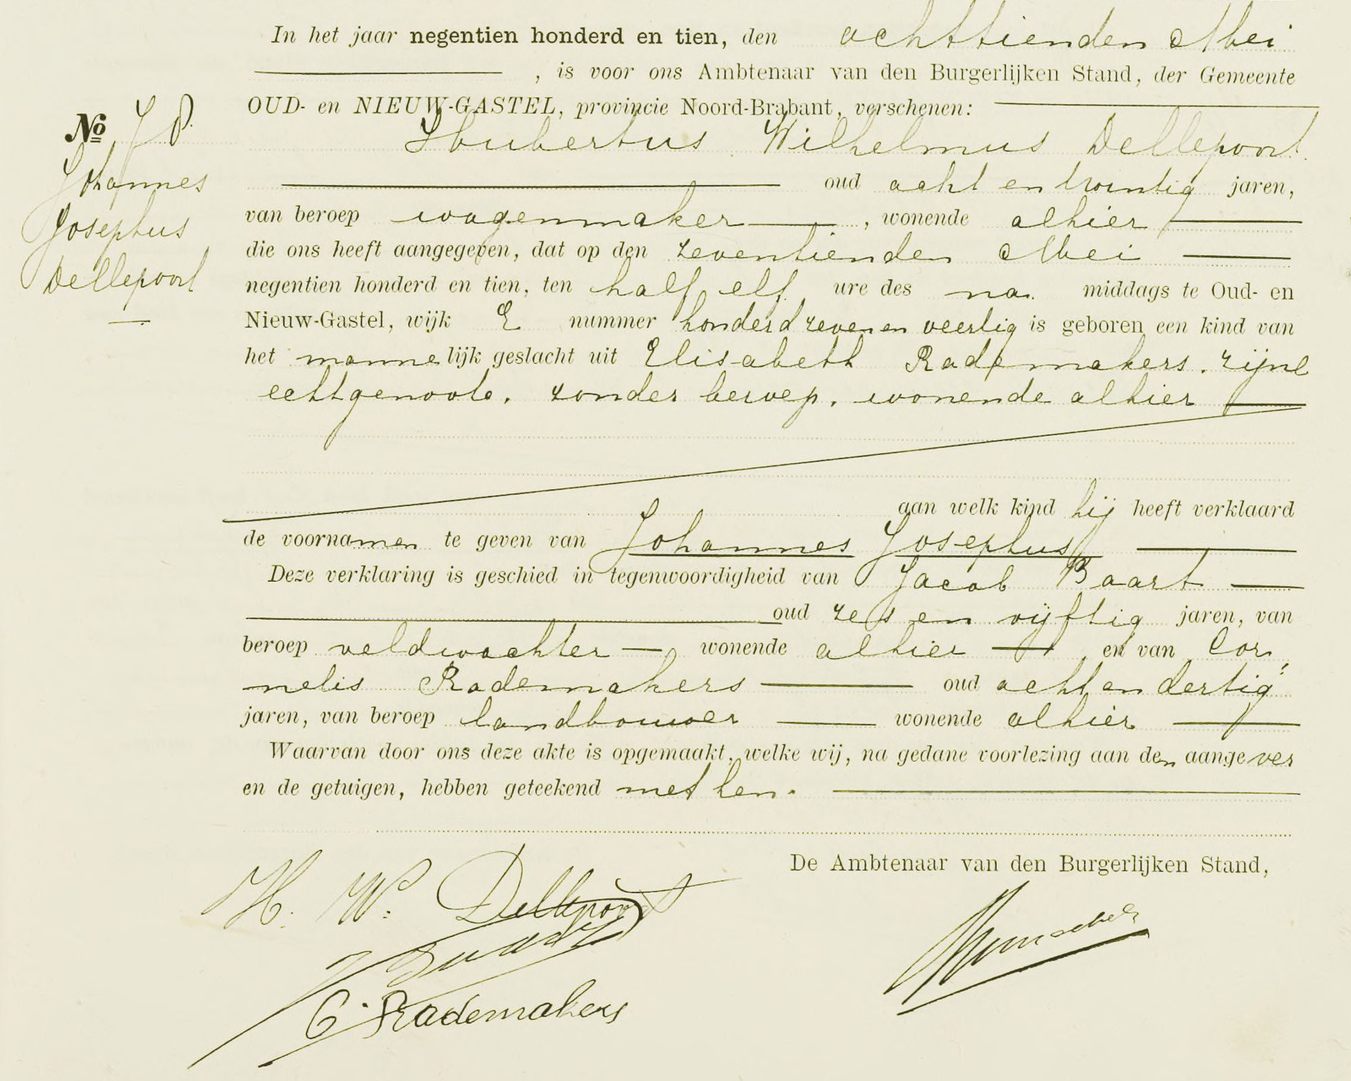 In het jaar negentien honderd en tien, den achttienden Mei
, is voor ons Ambtenaar van den Burgerlijken Stand, der Gemeente
OUD- en NIEUW-GASTEL, provincie Noord-Brabant, verschenen:
No
Hubertus Wilhelmus Dellepoort.
Johannes
Josephus
Dellepoort
oud acht en twintig jaren,
van beroep wagenmaker, wonende alhier
die ons heeft aangegeven, dat op den zeventienden Mei
negentien honderd en tien, ten half elf ure des na middags te Oud- en
Nieuw-Gastel, wijk E nummer honderd zeven en veertig is geboren een kind van
het mannelijk geslacht uit Elisabeth Rademakers, zijne
echtgenoote, zonder beroep, wonende alhier
aan welk kind hij heeft verklaard
de voornamen te geven van Johannes Josephus
Deze verklaring is geschied in tegenwoordigheid van Jacob Baart
oud zes en vijftig jaren, van
beroep veldwachter wonende alhier, en van Cor-
nelis Rademakers oud acht en dertig
jaren, van beroep landbouwer wonende alhier
Waarvan door ons deze akte is opgemaakt, welke wij, na gedane voorlezing aan den aangever
en de getuigen, hebben geteekend met hen.
De Ambtenaar van den Burgerlijken Stand,
H. W. Dellepoort
J Baart
C. Rademakers